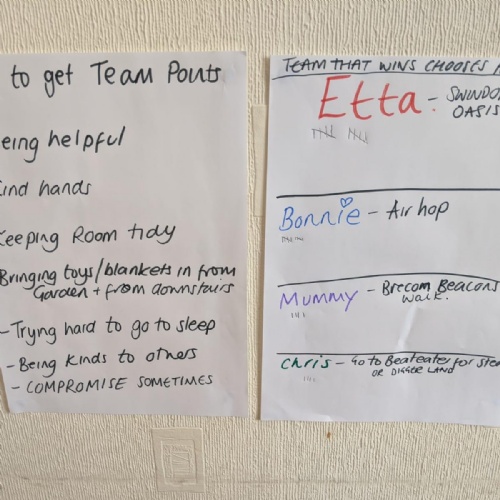 to get Team Points
eing helpful
ind hands
eeping Room tidy
Bringing toys/blankets in from
Garden + from downstairs
- Trying hard to go to sleep
- Being kinds to others
- COMPROMISE SOMETIMES
TEAM THAT WINS CHOOSES
Etta - SWINDO
OASIS
Bonnie - Air hop
Mummy - Brecom Beacons
walk.
Chris - Go to Beateater for Ste
OR DIGGER LAND